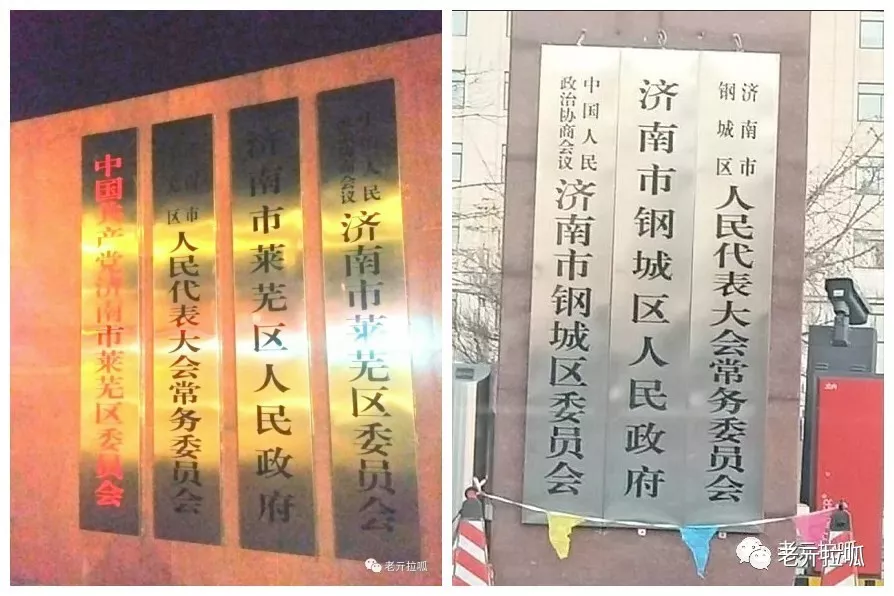 中国共产党济南市莱芜区委员会
南市
区
人民代表大会常务委员会
济南市莱芜区人民政府
中国人民
政治协商会议
济南市莱芜区委员会
老亓拉呱
中国人民
政治协商会议
济南市钢城区委员会
济南市钢城区人民政府
济南市
钢城区
人民代表大会常务委员会
老亓拉呱